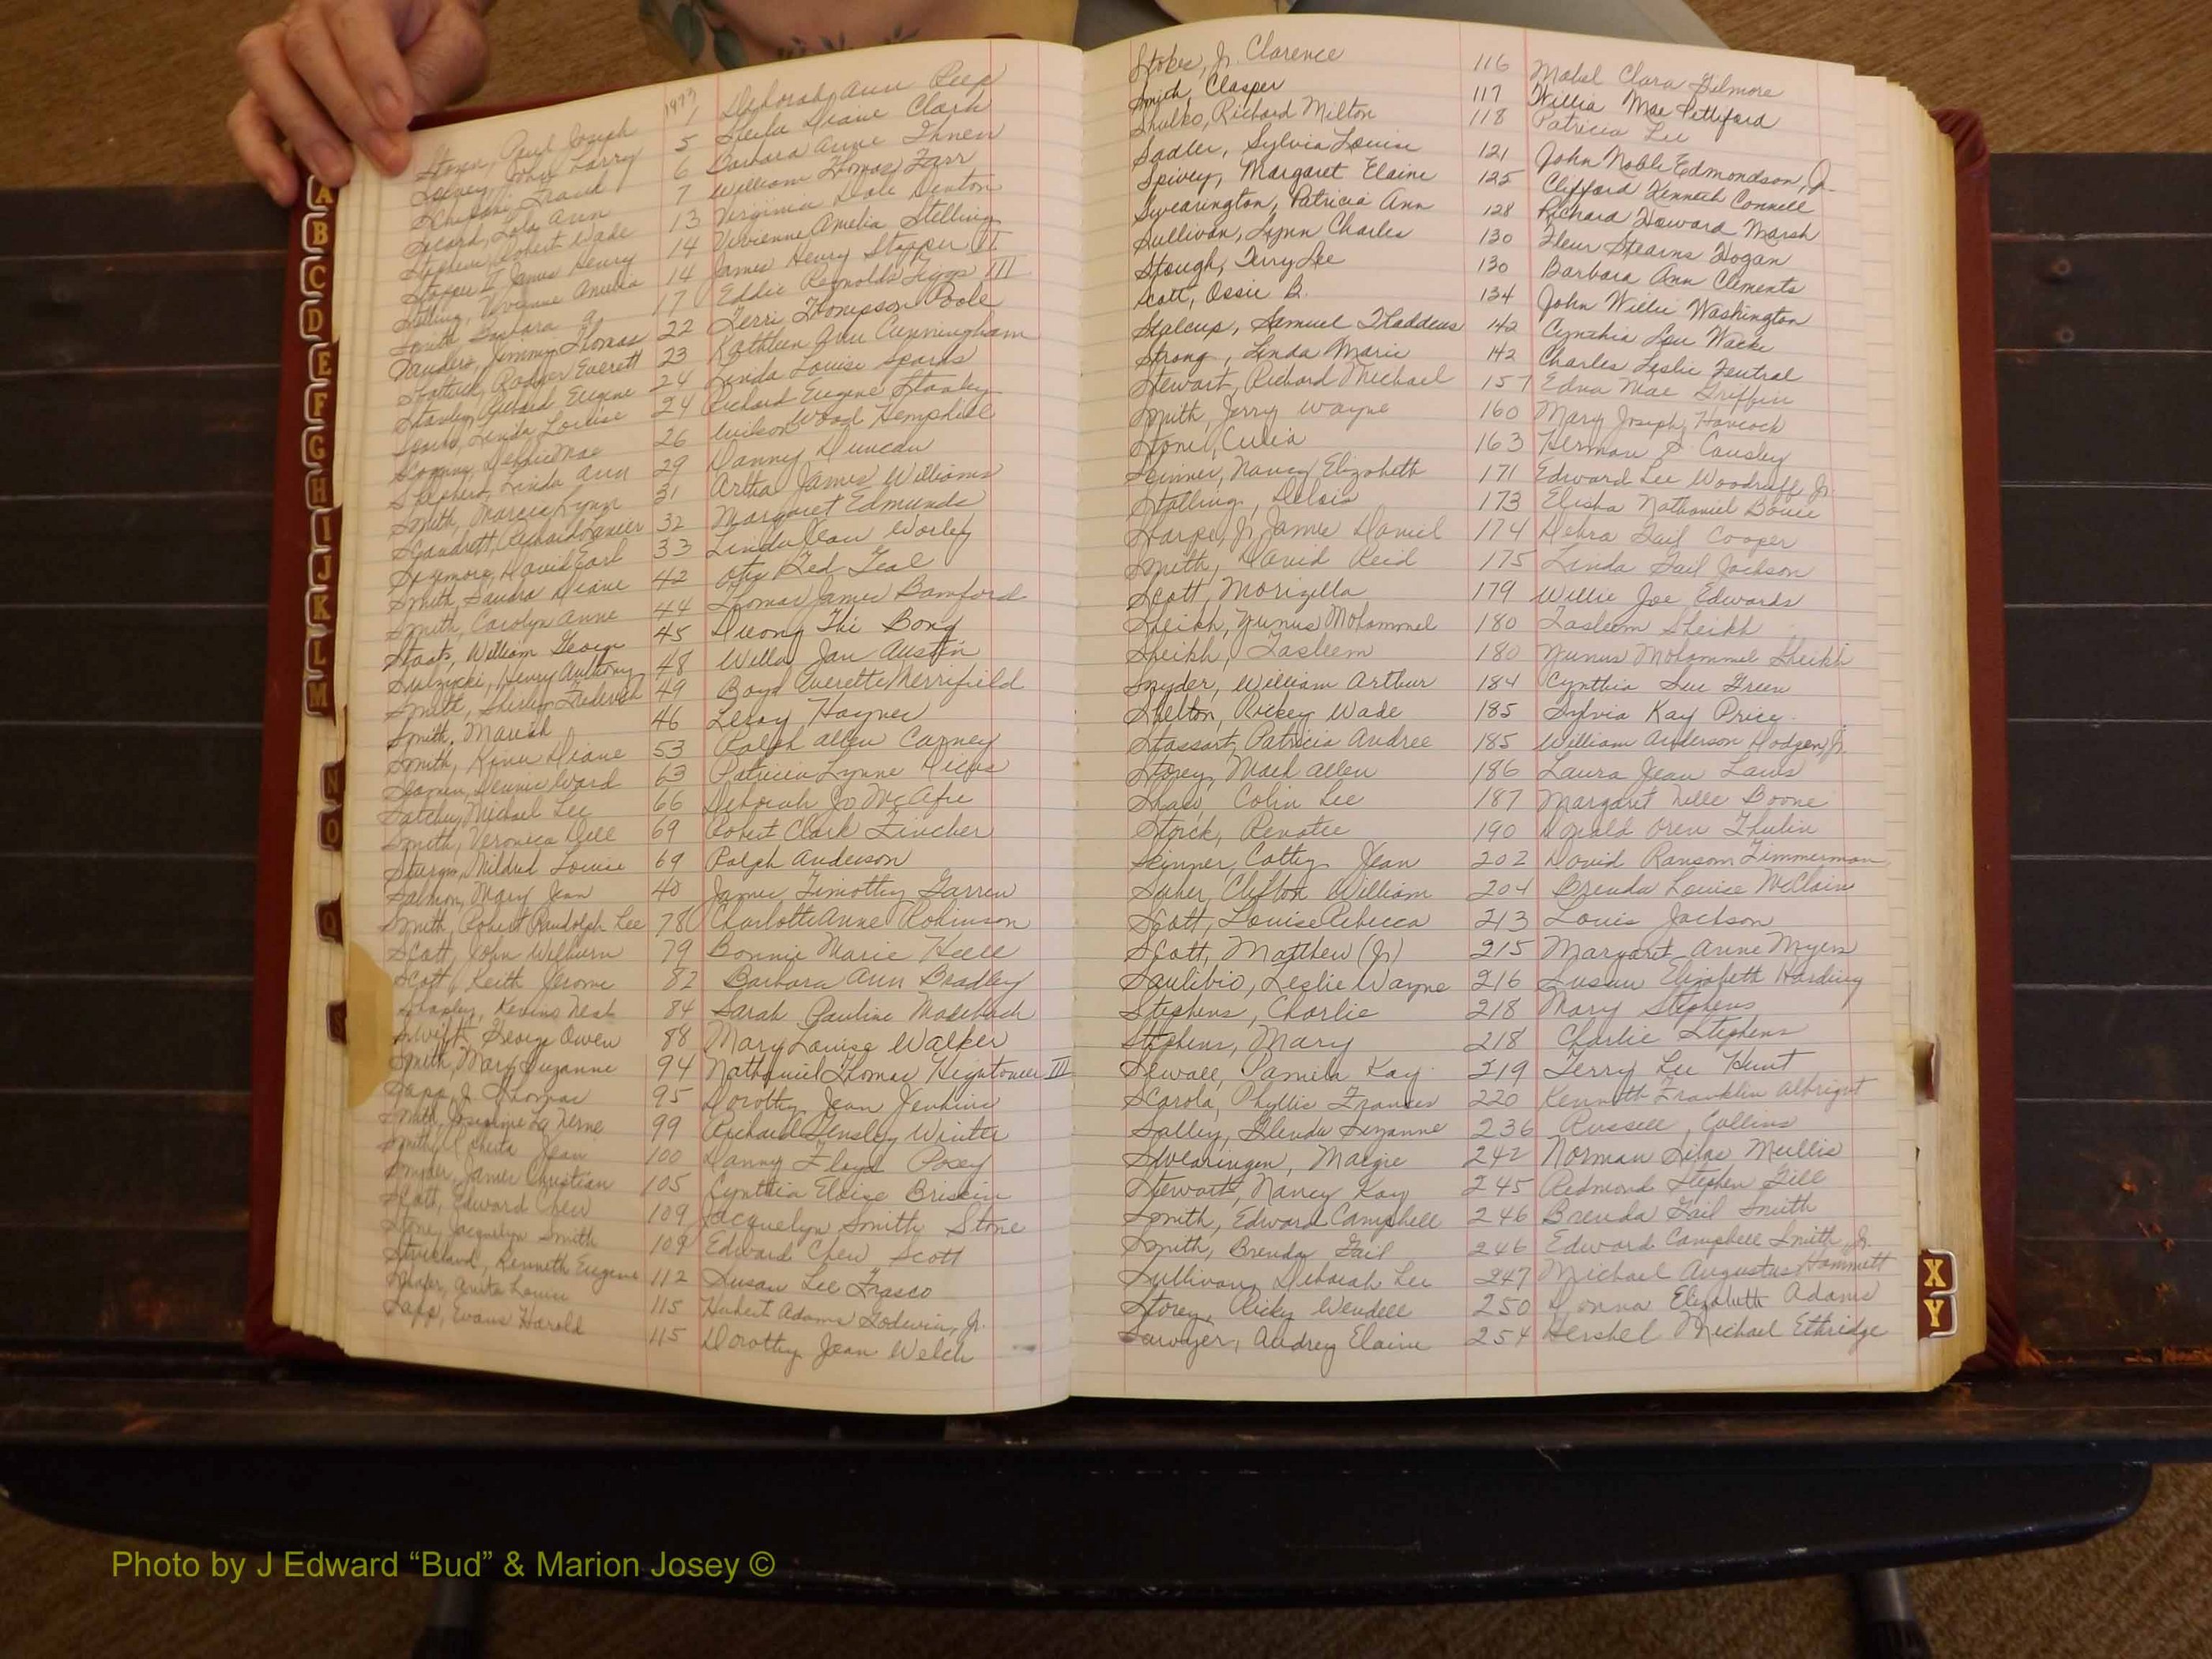 1973
Paul Joseph 1 Deborah Ann Reep
Larry 5 Sheila Diane Clark
6 Barbara Anne Ihnen
Lola Ann 7 William Thomas Farr
Stephens, Robert Wade 13 Virginia Dale Denton
Stopper II James Henry 14 Vivienne Amelia Stelling
Stelling, Vivienne Amelia 14 James Henry Stopper II
Smith Barbara A. 17 Eddie Reynolds III
Sanders, Jimmy Thomas 22 Terri Thompson Poole
Rodger Everett 23 Kathleen Ann Cunningham
Stanley, Richard Eugene 24 Linda Louise Sparks
Sparks, Linda Louise 24 Richard Eugene Stanley
26 Wilson Wood Hemphill
Shepherd, Linda Ann 29 Danny Duncan
Smith, Marcia Lynn 31 Artha James Williams
Richard Lanier 32 Margaret Edmunds
Sizemore, David Earl 33 Linda Jean Worley
Smith, Sandra Diane 42 Otis Ted Teal
Smith, Carolyn Anne 44 Thomas James Bamford
Staats, William George 45 Duong Thi Bong
Sulzycki, Henry Anthony 48 Willa Jan Austin
Smith, Shirley Frederick 49 Boyd Everette Merrifield
Smith, Mariah 46 Leroy Haynes
Smith, Diane 53 Ralph Allen Carney
Dennis Ward 63 Patricia Lynne
Michael Lee 66 Deborah Jo McAfee
Smith, Veronica Dell 69 Robert Clark Fincher
Sturgis, Mildred Louise 69 Ralph Anderson
Salmon, Mary Jean 40 James Timothy Garren
Smith, Robert Randolph Lee 78 Charlotte Anne Robinson
Scott, John Wilburn 79 Bonnie Marie Hull
Scott, Keith Jerome 82 Barbara Ann Bradley
84 Sarah Pauline
Swift, George Owen 88 Mary Louise Walker
Smith, Mary Suzanne 94 Nathaniel Thomas Hightower III
Sapp, J. Thomas 95 Dorothy Jean Jenkins
Smith, Josephine La Verne 99 Richard Hensley Winter
Smith, Jean 100 Danny Floyd Posey
Snyder, James Christian 105 Cynthia Eloise Briskin
Scott, Edward Chew 109 Jacquelyn Smith Stone
Stone, Jacquelyn Smith 109 Edward Chew Scott
Strickland, Kenneth Eugene 112 Susan Lee Frasco
Anita Louise 115 Hubert Adams Godwin, Jr.
Sapp, Evans Harold 115 Dorothy Jean Welch
Stokes, Jr. Clarence 116 Mabel Clara Gilmore
Smith, Clasper 117 Willia Mae Pettiford
Shulko, Richard Milton 118 Patricia Lee
Sadler, Sylvia Louise 121 John Noble Edmondson, Jr.
Spivey, Margaret Elaine 125 Clifford Kenneth Connell
Swearington, Patricia Ann 128 Richard Howard Marsh
Sullivan, Lynn Charles 130 Fleur Stearns Hogan
Stough, Terry Lee 130 Barbara Ann Clements
Scott, Ossie B. 134 John Willie Washington
Stalcup, Samuel Thaddeus 142 Cynthia Lou Wacks
Strong, Linda Marie 142 Charles Leslie Fentral
Stewart, Richard Michael 157 Edna Mae Griffin
Smith, Jerry Wayne 160 Mary Joseph Havcock
Stone, Curia 163 Herman S Causley
Skinner, Nancy Elizabeth 171 Edward Lee Woodruff Jr.
Stalling, Delois 173 Elisha Nathaniel Bouie
Sharpe, Jr, James Daniel 174 Debra Gail Cooper
Smith, David Reid 175 Linda Gail Jackson
Scott, Morizella 179 Willie Joe Edwards
Sheikh, Yunus Mohammel 180 Tasleem Sheikh
Sheikh, Tasleem 180 Yunus Mohammel Sheikh
Snyder, William Arthur 184 Cynthia Sue Green
Shelton, Rickey Wade 185 Sylvia Kay Price
Stassart, Patricia Andree 185 William Anderson Hodgen, Jr.
Storey, Mack Allen 186 Laura Jean Laws
Shaw, Colin Lee 187 Margaret Nelle Boone
Storck, Renatee 190 Donald Oren Thulin
Skinner, Cathy Jean 202 David Ransom Zimmerman
Suher, Clifton William 204 Brenda Louise McClain
Scott, Louise Rebecca 213 Louis Jackson
Scott, Matthew (Jr) 215 Margaret Anne Myers
Saulibio, Leslie Wayne 216 Susan Elizabeth Harding
Stephens, Charlie 218 Mary Stephens
Stephens, Mary 218 Charlie Stephens
Sewall, Pamela Kay 219 Terry Lee Hunt
Scarola, Phyllis Frances 220 Kenneth Franklin Albright
Salley, Glenda Suzanne 236 Russell Collins
Swearingen, Margie 242 Norman Silas Mullis
Stewart, Nancy Kay 245 Redmond Stephen Gill
Smith, Edward Campbell 246 Brenda Gail Smith
Smith, Brenda Gail 246 Edward Campbell Smith, Jr.
Sullivan, Deborah Lee 247 Michael Augustus Hammett
Storey, Ricky Wendell 250 Donna Elizabeth Adams
Sawyer, Audrey Elaine 254 Hershel Michael Ethridge
A
B
C
D
E
F
G
H
I
J
K
L
M
N
O
Q
S
X
Y
Photo by J Edward “Bud” & Marion Josey ©